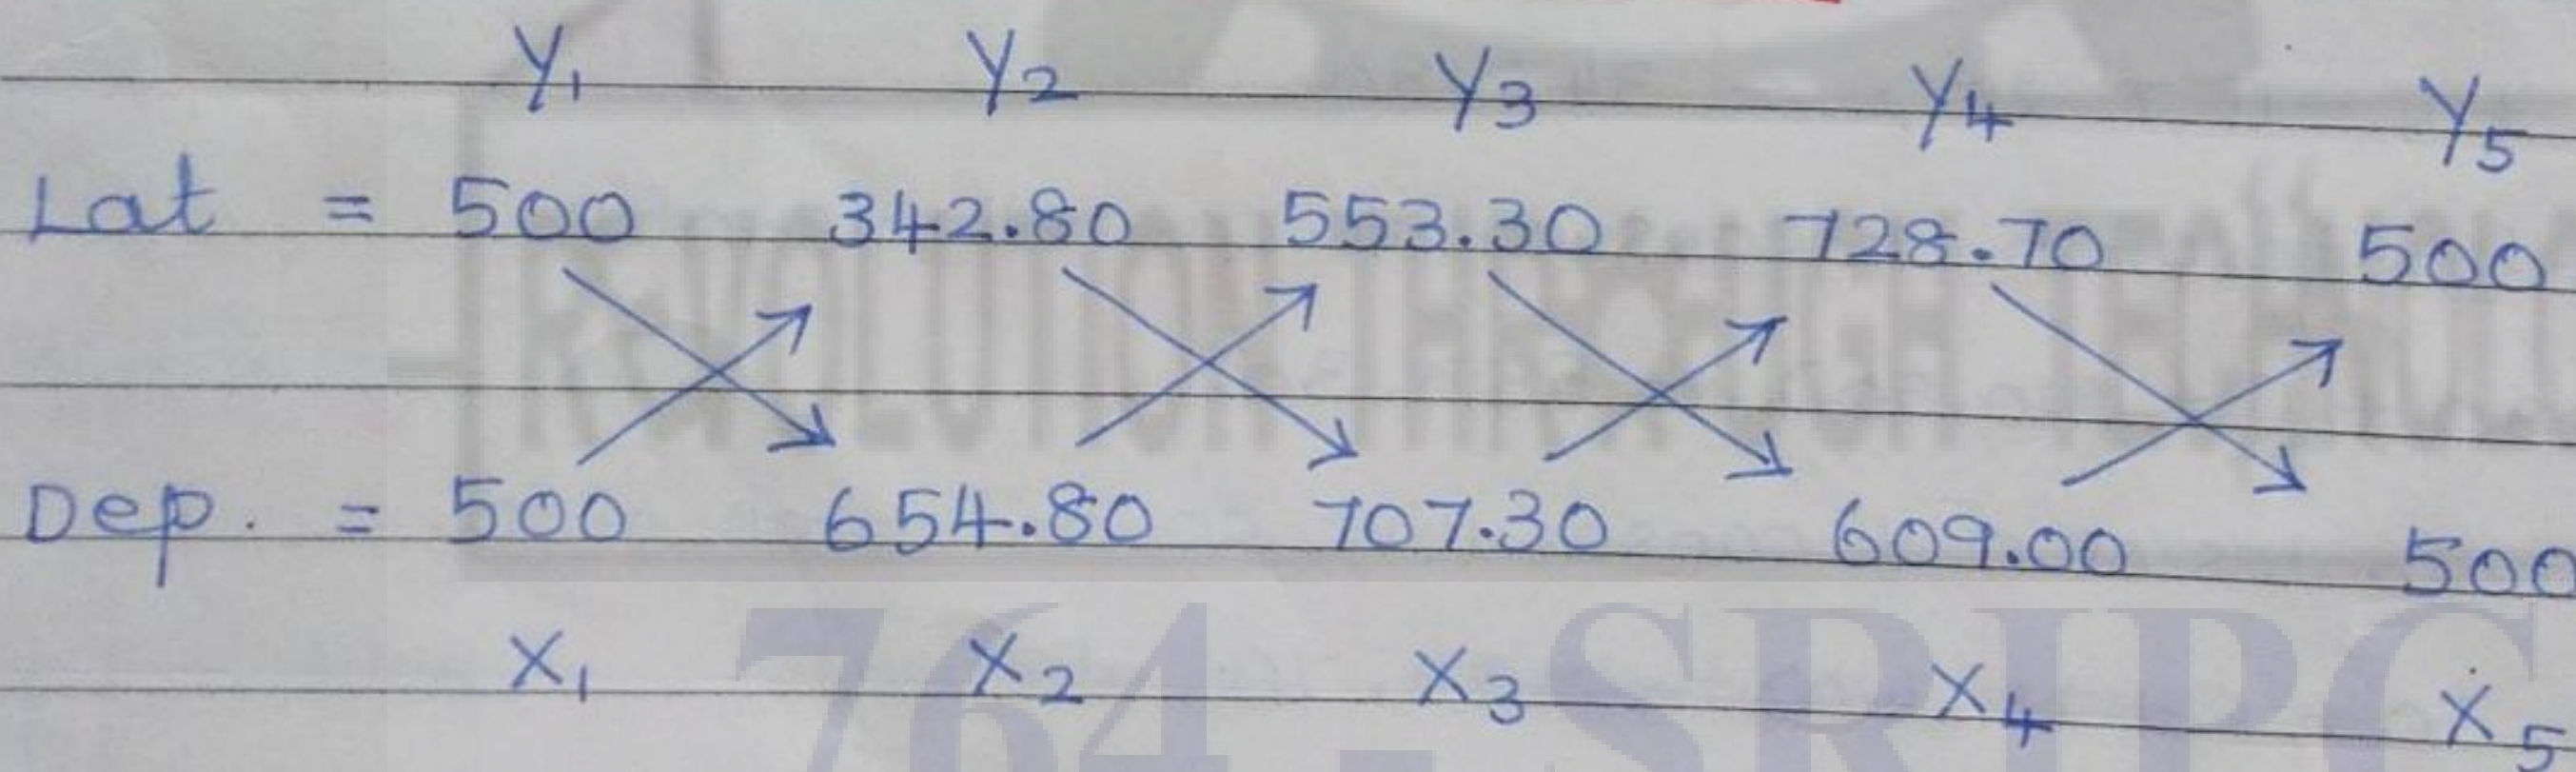 Y1 Y2 Y3 Y4 Y5
Lat = 500 342.80 553.30 728.70 500
Dep. = 500 654.80 707.30 609.00 500
X1 X2 X3 X4 X5
764 - SRIPC